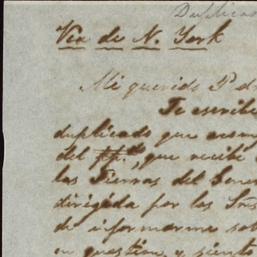 Duplicado
Via de N. York
Mi querido P
Te escribi
duplicado que acom
del ppdo, que recibi
las Tierras del Gene
dirigida por los Sres
de informarme sob
en question y siento